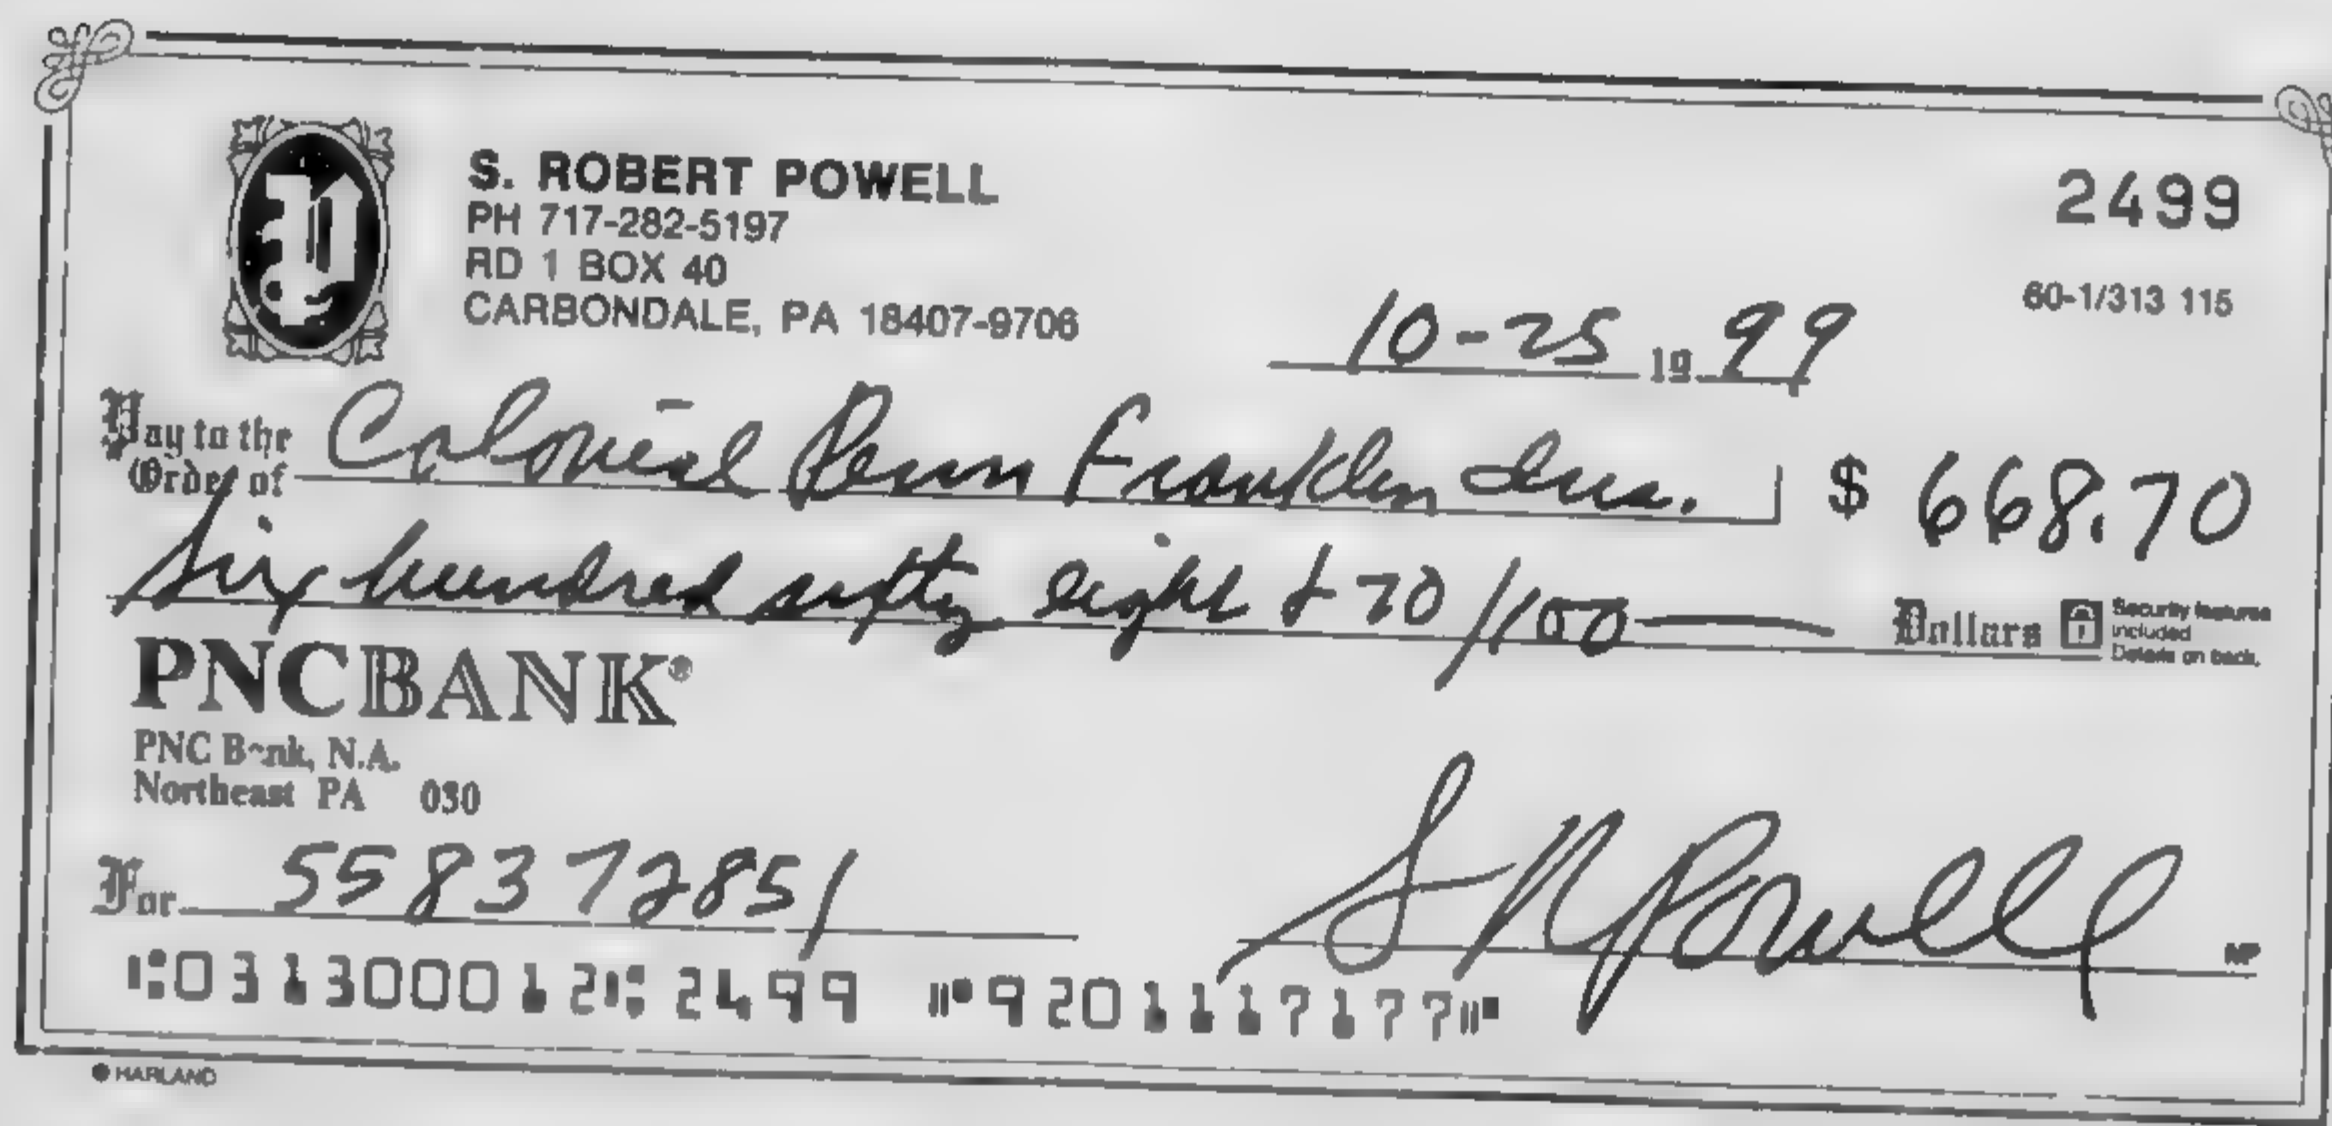 S. ROBERT POWELL
PH 717-282-5197
RD 1 BOX 40
CARBONDALE, PA 18407-9706
2499
60-1/313 115
10-25 19 99
Pay to the Order of Colonial Penn Franklin Ins. $ 668.70
Six hundred sixty eight & 70/100 Dollars
Security features
included
Details on back.
PNCBANK®
PNC Bank, N.A.
Northeast PA 030
For 558372851
S R Powell
MP
⑆031300012⑆ 2499 ⑈9201117177⑈
HARLAND